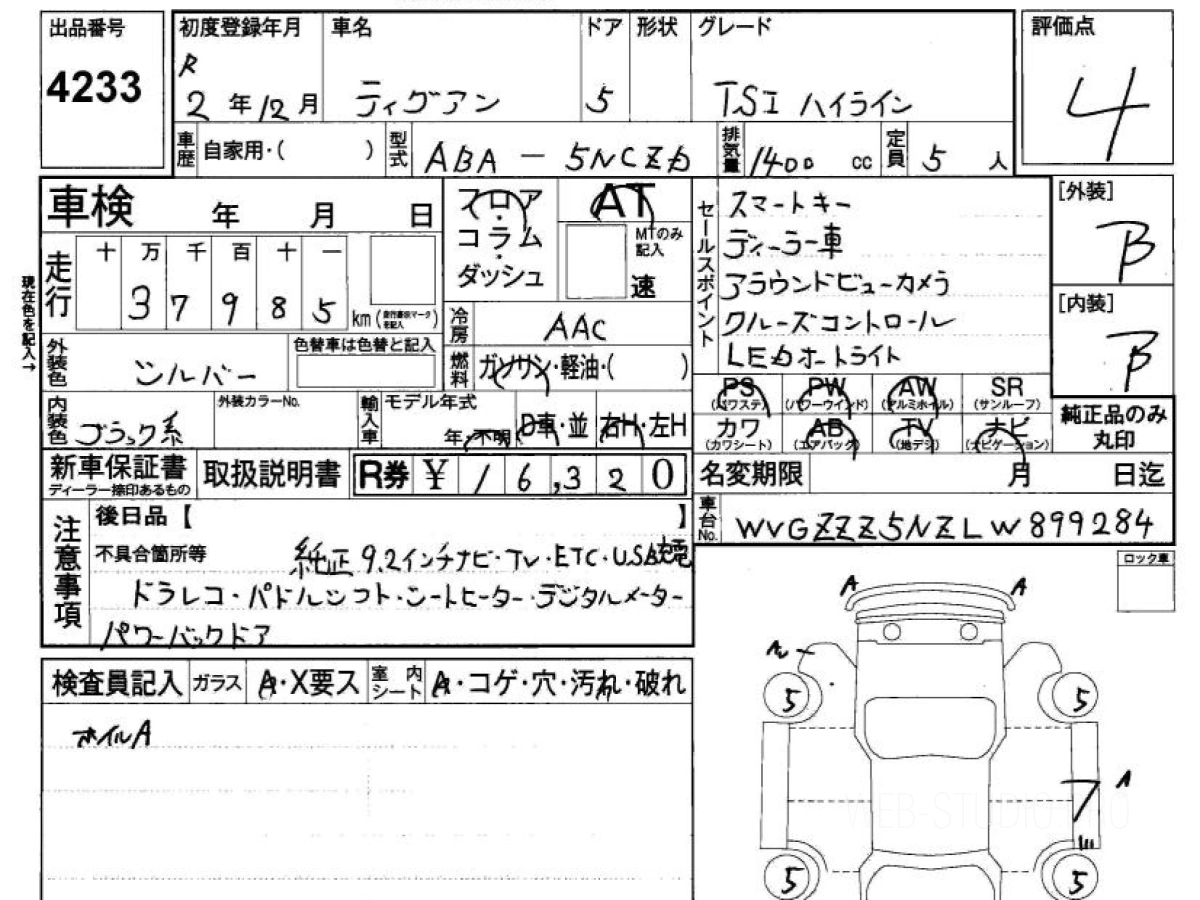 出品番号 初度登録年月 車名 ドア 形状 グレード 評価点
4233 R 2年12月 ティグアン 5 TSI ハイライン 4
車歴 自家用・( ) 型式 ABA-5NCZD 排気量 1400 cc 定員 5 人
車検 年 月 日
フロア・コラム・ダッシュ
AT
MTのみ記入
速
セールスポイント
スマートキー
ディーラー車
アラウンドビューカメラ
クルーズコントロール
LEDオートライト
[外装]
B
[内装]
B
現在色を記入→
走行 十 万 千 百 十 一
3 7 9 8 5 km
冷房 AAC
外装色 シルバー 色替車は色替と記入
燃料 ガソリン・軽油・( )
内装色 ブラック系 外装カラーNo. 輸入車 モデル年式
年・不明 D車・並 右H・左H
PS (パワステ) PW (パワーウインド) AW (アルミホイル) SR (サンルーフ)
カワ (カワシート) AB (エアバック) TV (地デジ) ナビ (ナビゲーション)
純正品のみ
丸印
新車保証書 ディーラー捺印あるもの 取扱説明書 R券 ¥ 16,320
名変期限 月 日迄
車台No. WVGZZZ5NZLW899284
注意事項
後日品【 】
不具合箇所等 純正9.2インチナビ・TV・ETC・USB
ドラレコ・パドルシフト・シートヒーター・デジタルメーター
パワーバックドア
ロック車
検査員記入 ガラス A・X要ス 室内シート A・コゲ・穴・汚れ・破れ
ホイルA
A A
5 5
A
7
5 5
WEB-STUDIO.PRO